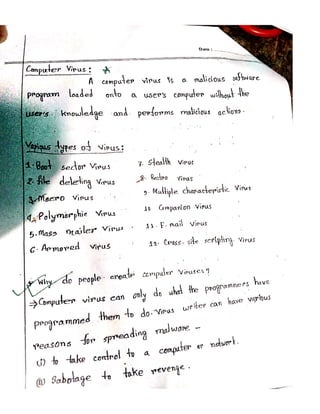 Date :
Computer Virus :
A computer virus is a malicious software
program loaded onto a user's computer without the
users knowledge and performs malicious actions.
Various types of virus:
1. Boot sector Virus
2. file deleting Virus
3. Macro Virus
4. Polymorphic Virus
5. Mass mailer Virus
6. Armored Virus
7. Stealth Virus
8. Retro Virus
9. Multiple characteristic Virus
10. Companion Virus
11. E-mail Virus
12. Cross-site scripting Virus
* Why do people create computer Viruses?
⇒ Computer virus can only do what the programmers have
programmed them to do. Virus writer can have various
reasons for spreading malware –
(i) to take control to a computer or network.
(ii) Sabotage to take revenge.